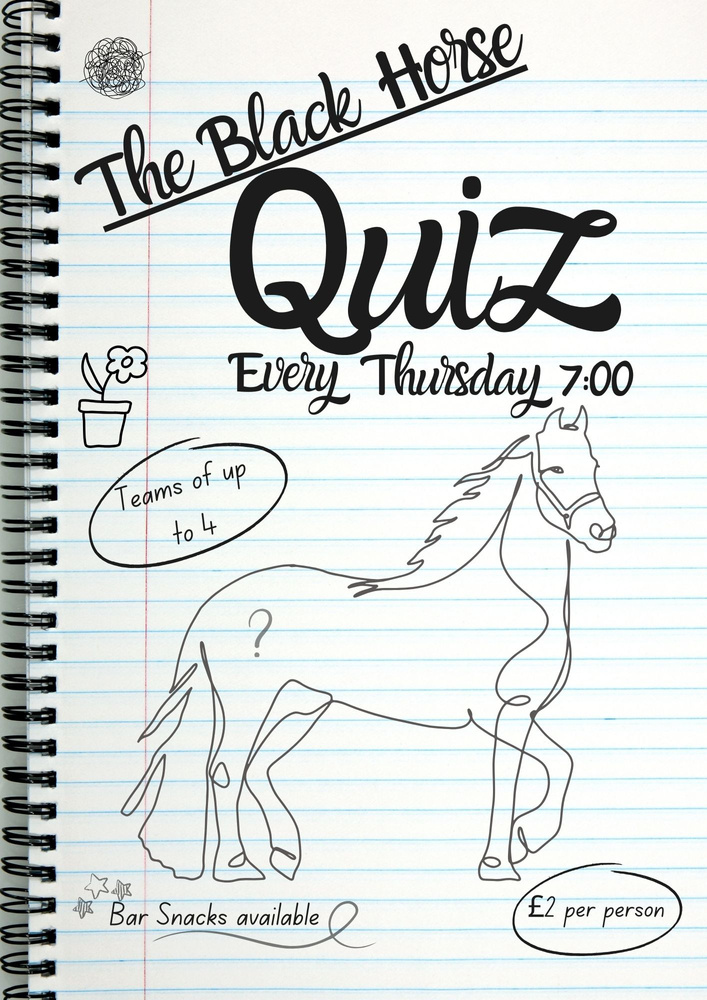 The Black Horse
Quiz
Every Thursday 7:00
Teams of up
to 4
?
Bar Snacks available
£2 per person